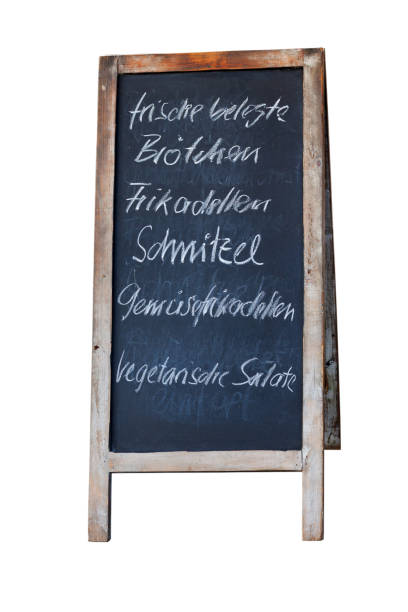 frische belegte
Brötchen
Frikadellen
Schnitzel
Gemüsefrikadellen
Vegetarische Salate